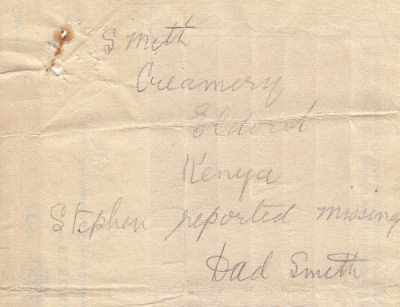 Smith
Creamery
Eldoret
Kenya
Stephen reported missing
Dad Smith